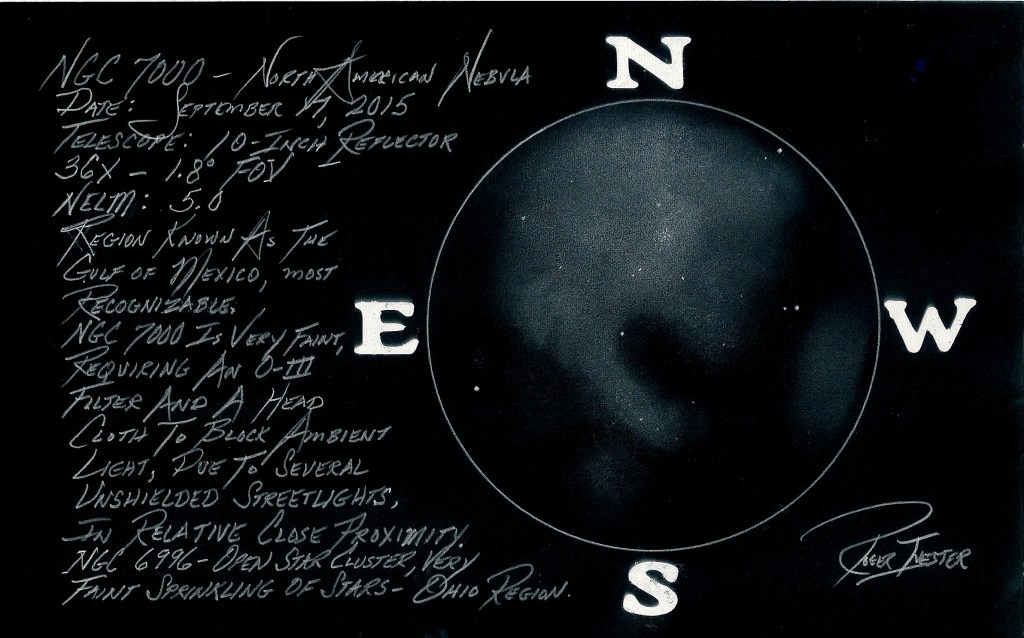 NGC 7000 – North American Nebula
Date: September 11, 2015
Telescope: 10-Inch Reflector
36X – 1.8° FOV –
NELM: 5.0
Region Known As The
Gulf of Mexico, most
Recognizable.
NGC 7000 Is Very Faint,
Requiring An O-III
Filter And A Head
Cloth To Block Ambient
Light, Due To Several
Unshielded Streetlights,
In Relative Close Proximity.
NGC 6996 – Open Star Cluster, Very
Faint Sprinkling Of Stars – Ohio Region.
N
E
W
S
Roger Ivester